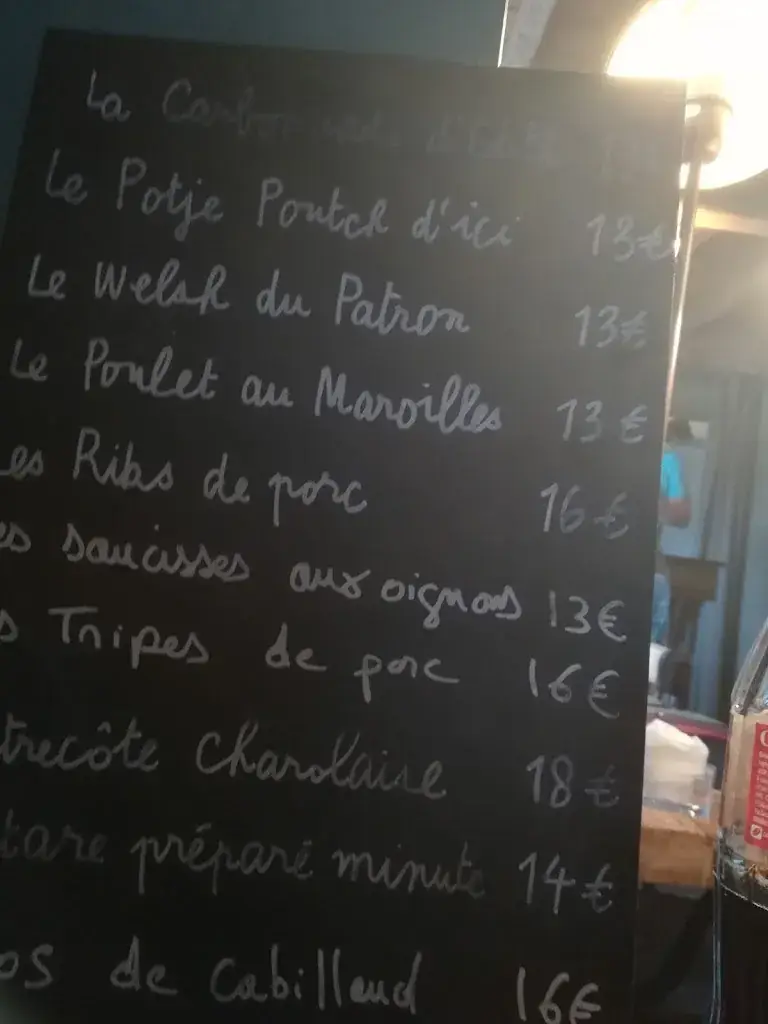 La
Le Potje Poutch d'ici 13€
Le Welsh du Patron 13€
Le Poulet au Maroilles 13€
es Ribs de porc 16€
es saucisses aux oignons 13€
s Tripes de porc 16€
trecôte Charolaise 18€
tare préparé minute 14€
os de Cabillaud 16€